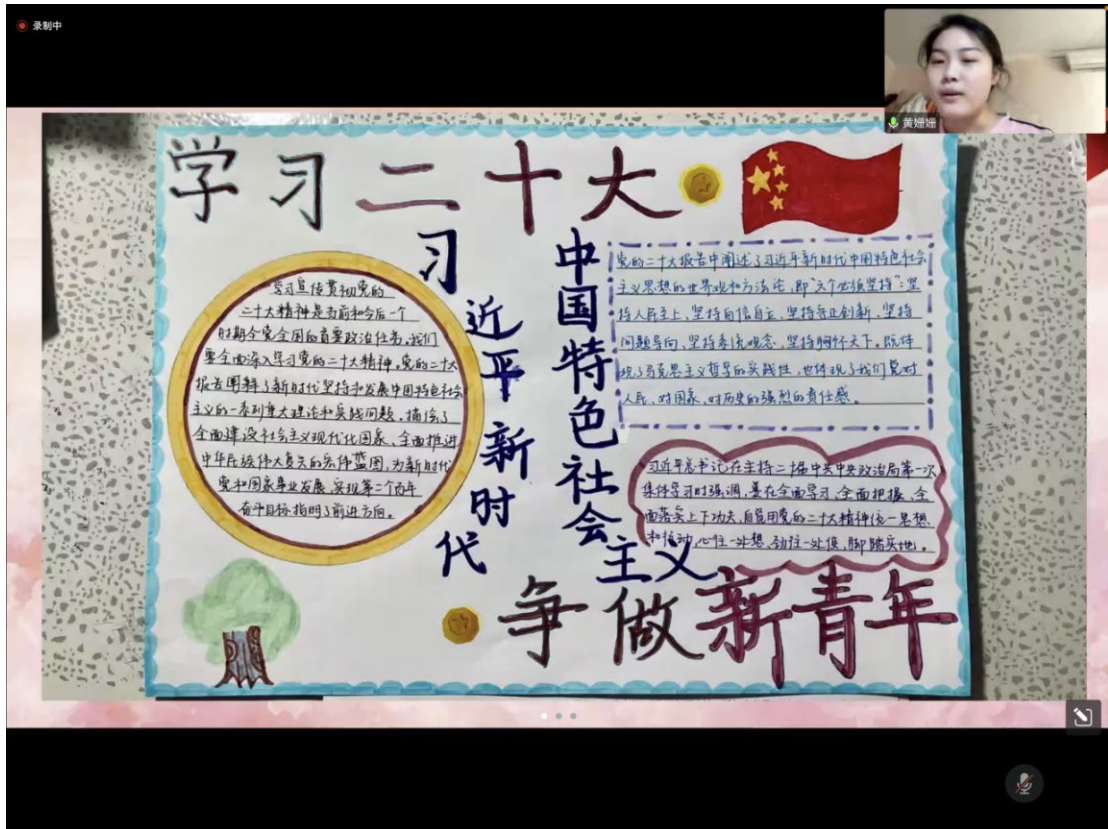 录制中
黄姗姗
学习二十大
习近平新时代
中国特色社会主义
学习宣传贯彻党的
二十大精神是当前和今后一个
时期全党全国的首要政治任务。我们
要全面深入学习党的二十大精神。党的二十大
报告阐释了新时代坚持和发展中国特色社会
主义的一系列重大理论和实践问题,描绘了
全面建设社会主义现代化国家、全面推进
中华民族伟大复兴的宏伟蓝图,为新时代
党和国家事业发展、实现第二个百年
奋斗目标指明了前进方向。
党的二十大报告中阐述了习近平新时代中国特色社会
主义思想的世界观和方法论,即"六个必须坚持":坚
持人民至上、坚持自信自立、坚持守正创新、坚持
问题导向、坚持系统观念、坚持胸怀天下。既体
现了马克思主义哲学的实践性,也体现了我们党对
人民、对国家、对历史的强烈的责任感。
习近平总书记在主持二十届中共中央政治局第一次
集体学习时强调,要在全面学习、全面把握、全
面落实上下功夫,自觉用党的二十大精神统一思想
和行动,心往一处想、劲往一处使,脚踏实地。
争做新青年